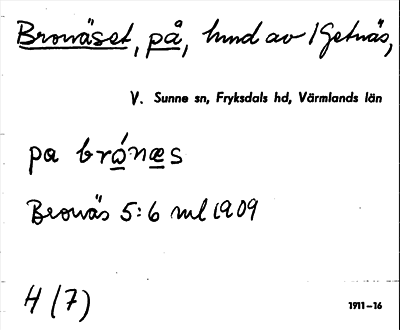 Bronäset, på, hmd av /Getnäs,
V. Sunne sn, Fryksdals hd, Värmlands län
pa brónæs
Bronäs 5:6 ml 1909
H (7)
1911–16